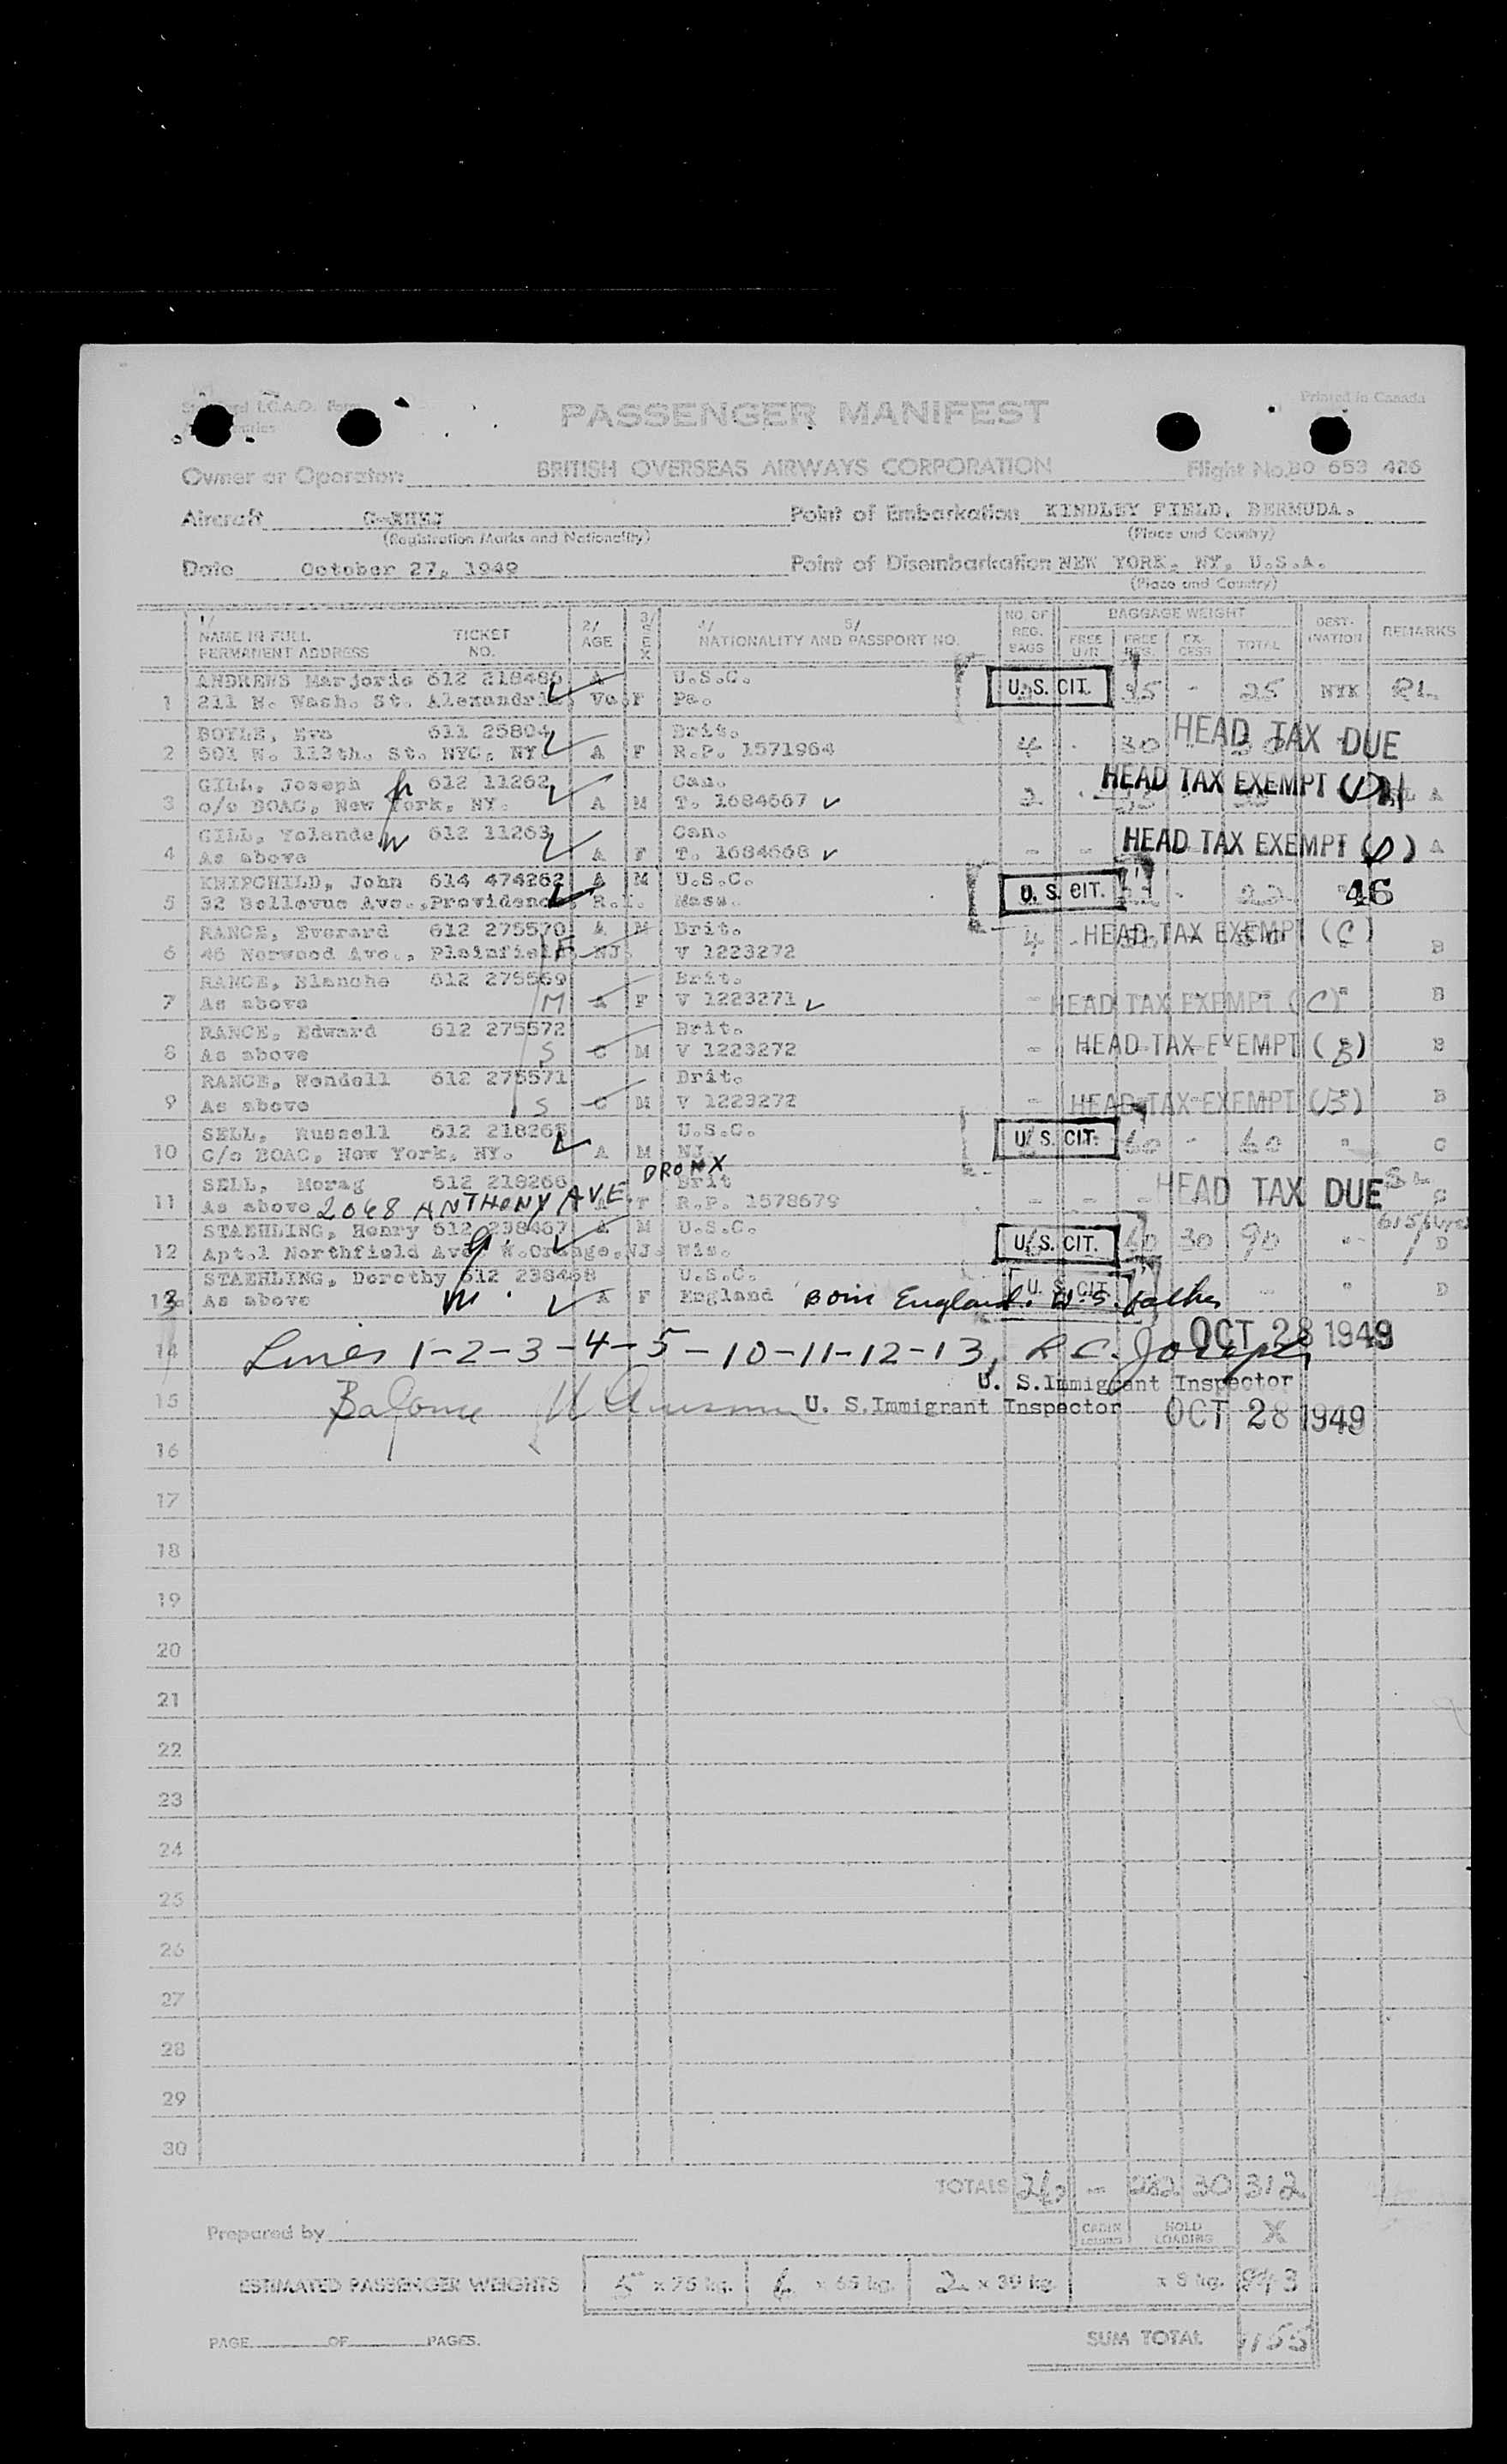 Printed in Canada
PASSENGER MANIFEST
Owner or Operator: BRITISH OVERSEAS AIRWAYS CORPORATION Flight No. BO 653 426
Aircraft
Point of Embarkation KINDLEY FIELD, BERMUDA.
(Registration Marks and Nationality) (Place and Country)
Date October 27, 1949 Point of Disembarkation NEW YORK, NY, U.S.A.
(Place and Country)
1/ NAME IN FULL PERMANENT ADDRESS TICKET NO. 2/ AGE 3/ SEX 4/ 5/ NATIONALITY AND PASSPORT NO. NO. OF REG. BAGS BAGGAGE WEIGHT FREE FREE EX-CESS TOTAL DEST-INATION REMARKS
ANDREWS Marjorie 612 218486 A U.S.C.
1 211 N. Wash. St. Alexandria, Va. F Pa. U.S. CIT. - 25 NYK
BOYLE, Eva 611 25804 Brit.
2 501 W. 113th. St. NYC, NY. A F R.P. 1571964 4 - 30 - HEAD TAX DUE
GILL, Joseph 612 11262 Can.
3 c/o BOAC, New York, NY. A M T. 1684667 2 HEAD TAX EXEMPT A
GILL, Yolande 612 11263 Can.
4 As above A F T. 1684668 - - HEAD TAX EXEMPT A
KNIPCHILD, John 614 474262 A M U.S.C.
5 32 Bellevue Ave., Providence, R.I. Mass. U.S. CIT. 22 - 22 46
RANCE, Everard 612 275570 A M Brit.
6 46 Norwood Ave., Plainfield, NJ. V 1223272 4 - HEAD TAX EXEMPT (C) B
RANCE, Blanche 612 275569 Brit.
7 As above M A F V 1223271 - HEAD TAX EXEMPT (C) B
RANCE, Edward 612 275572 Brit.
8 As above S C M V 1223272 - HEAD TAX EXEMPT (B) B
RANCE, Wendell 612 275571 Brit.
9 As above S C M V 1223272 - HEAD TAX EXEMPT (B) B
SELL, Russell 612 218265 U.S.C.
10 C/o BOAC, New York, NY. A M NJ. U.S. CIT. 60 - 60 " C
SELL, Morag 612 218266 BRONX Brit
11 As above 2068 ANTHONY AVE. A F R.P. 1578679 - - - HEAD TAX DUE C
STAEHLING, Henry 612 238467 A M U.S.C.
12 Apt.1 Northfield Ave, W.Orange, NJ. Wis. U.S. CIT. 60 30 90 " D
STAEHLING, Dorothy 612 238468 U.S.C.
13 As above A F England Born England. U.S. father U.S. CIT. - " D
14 Lines 1-2-3-4-5-10-11-12-13, R C. Joseph OCT 28 1949
U. S.Immigrant Inspector
15 Balance U. S.Immigrant Inspector OCT 28 1949
16
17
18
19
20
21
22
23
24
25
26
27
28
29
30
TOTALS - 282 30 312
Prepared by CABIN LOADING HOLD LOADING X
ESTIMATED PASSENGER WEIGHTS 5 x 75 kg. 6 x 65 kg. 2 x 39 kg. x 8 kg. 843
PAGE OF PAGES. SUM TOTAL 1155